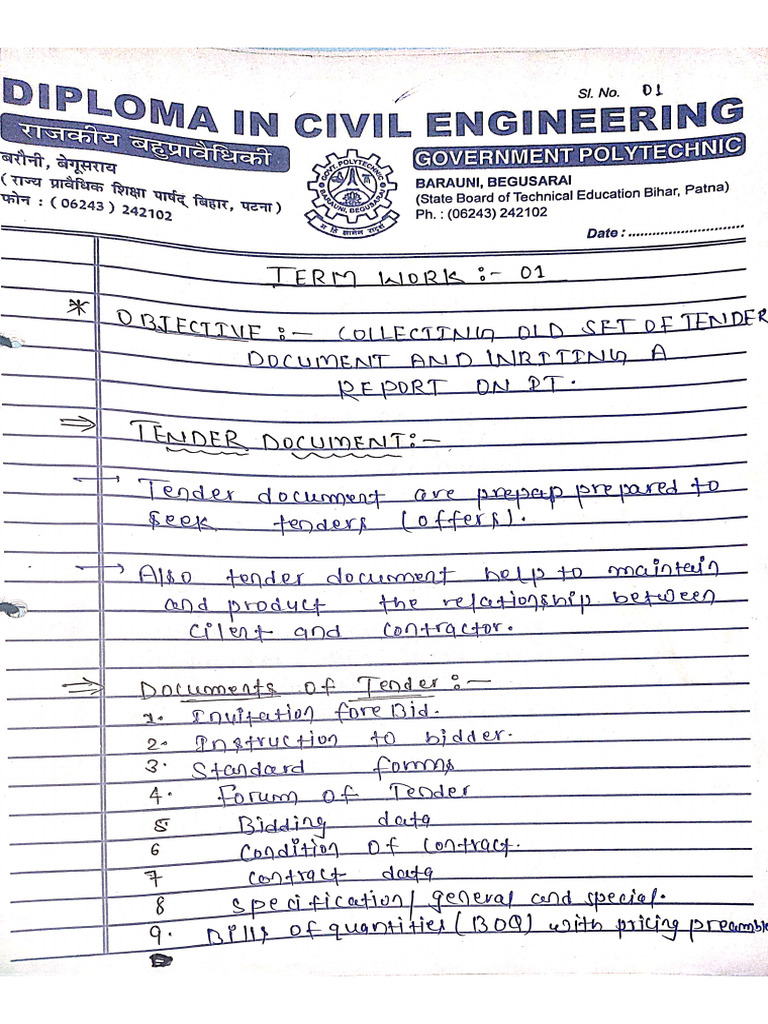 Sl. No. 01
DIPLOMA IN CIVIL ENGINEERING
राजकीय बहुप्रावैधिकी
GOVERNMENT POLYTECHNIC
बरौनी, बेगूसराय
( राज्य प्रावैधिक शिक्षा पार्षद् बिहार, पटना )
फोन : ( 06243 ) 242102
GOVT. POLYTECHNIC
BARAUNI, BEGUSARAI
BARAUNI, BEGUSARAI
(State Board of Technical Education Bihar, Patna)
Ph. : (06243) 242102
Date : ............................
TERM WORK :- 01
* OBJECTIVE :- COLLECTING OLD SET OF TENDER
DOCUMENT AND WRITING A
REPORT ON IT.
⇒ TENDER DOCUMENT:-
→ Tender document are prepap prepared to
seek tenders (offers).
→ Also tender document help to maintain
and product the relationship between
cilent and contractor.
⇒ Documents of Tender :-
1. Invitation fore Bid.
2. Instruction to bidder.
3. Standard fomms
4. Forum of Tender
5 Bidding data
6 Condition of Contract.
7 contract data
8 specification/ general and special.
9. Bills of quantities (BOQ) with pricing preamble